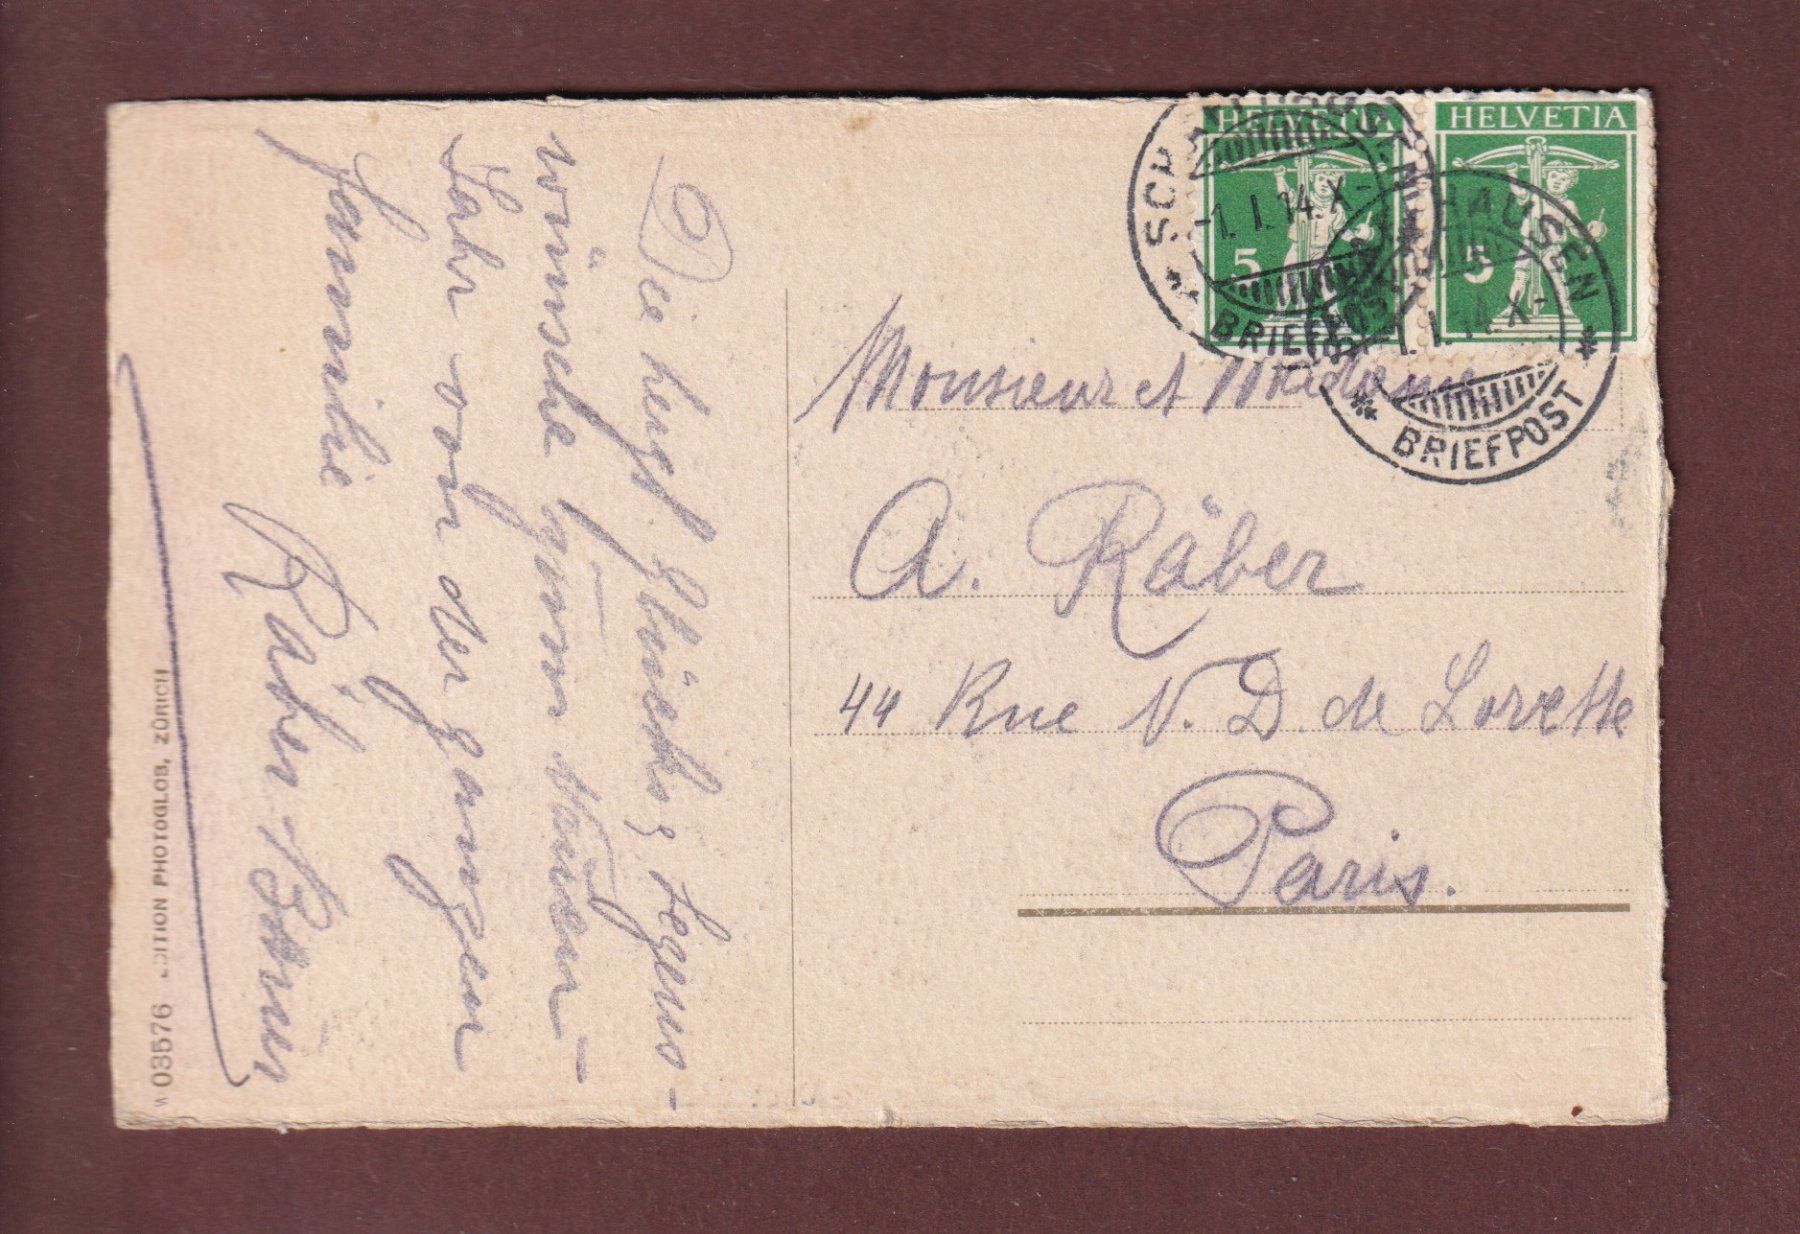 Die herzl. Glücks, & Segens-
wünsche zum Neuen-
Jahr von der ganzen
Familie
Räber-
W 03576 EDITION PHOTOGLOB, ZÜRICH
HELVETIA
5
HELVETIA
5
SCHAFFHAUSEN
-1. I. 14. X-
BRIEFPOST
SCHAFFHAUSEN
-1. I. 14. X-
BRIEFPOST
Monsieur et Madame
A. Räber
44 Rue N. D. de Lorette
Paris.